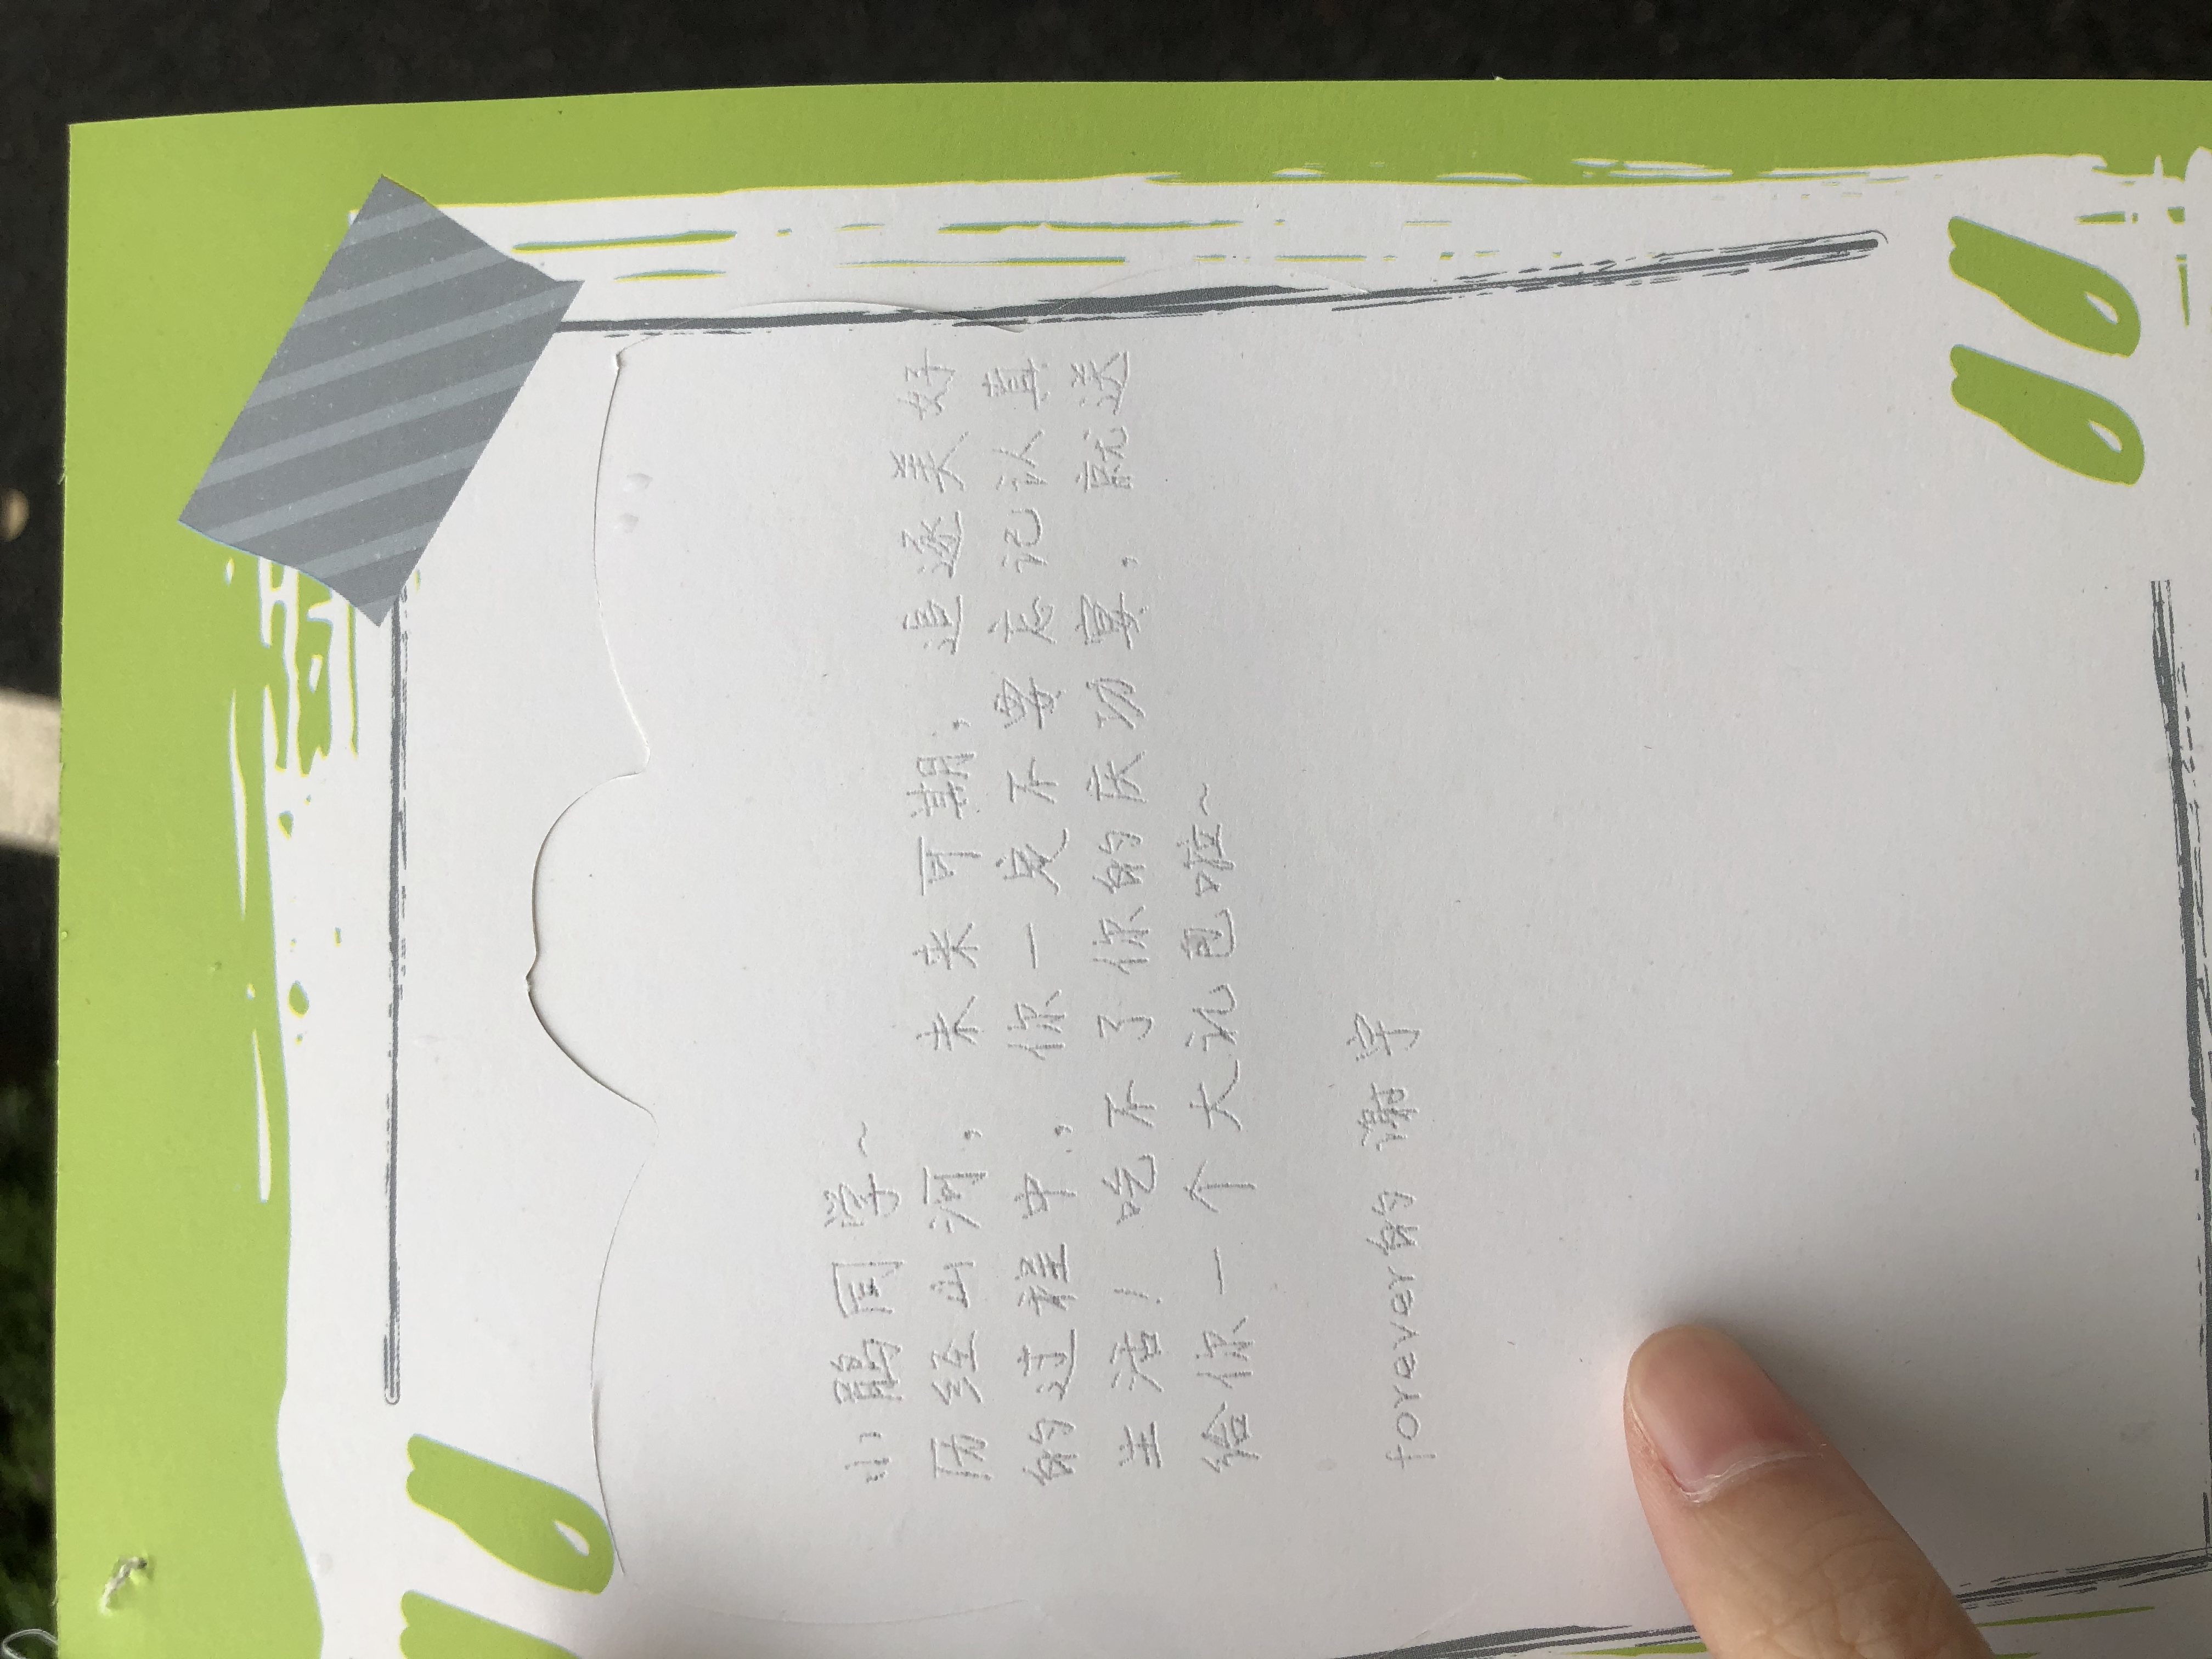 小鹃同学~
历经山河，未来可期，追逐美好
的过程中，你一定不要忘记认真
生活！吃不了你的庆功宴，就送
给你一个大礼包啦~
forever的谢宇